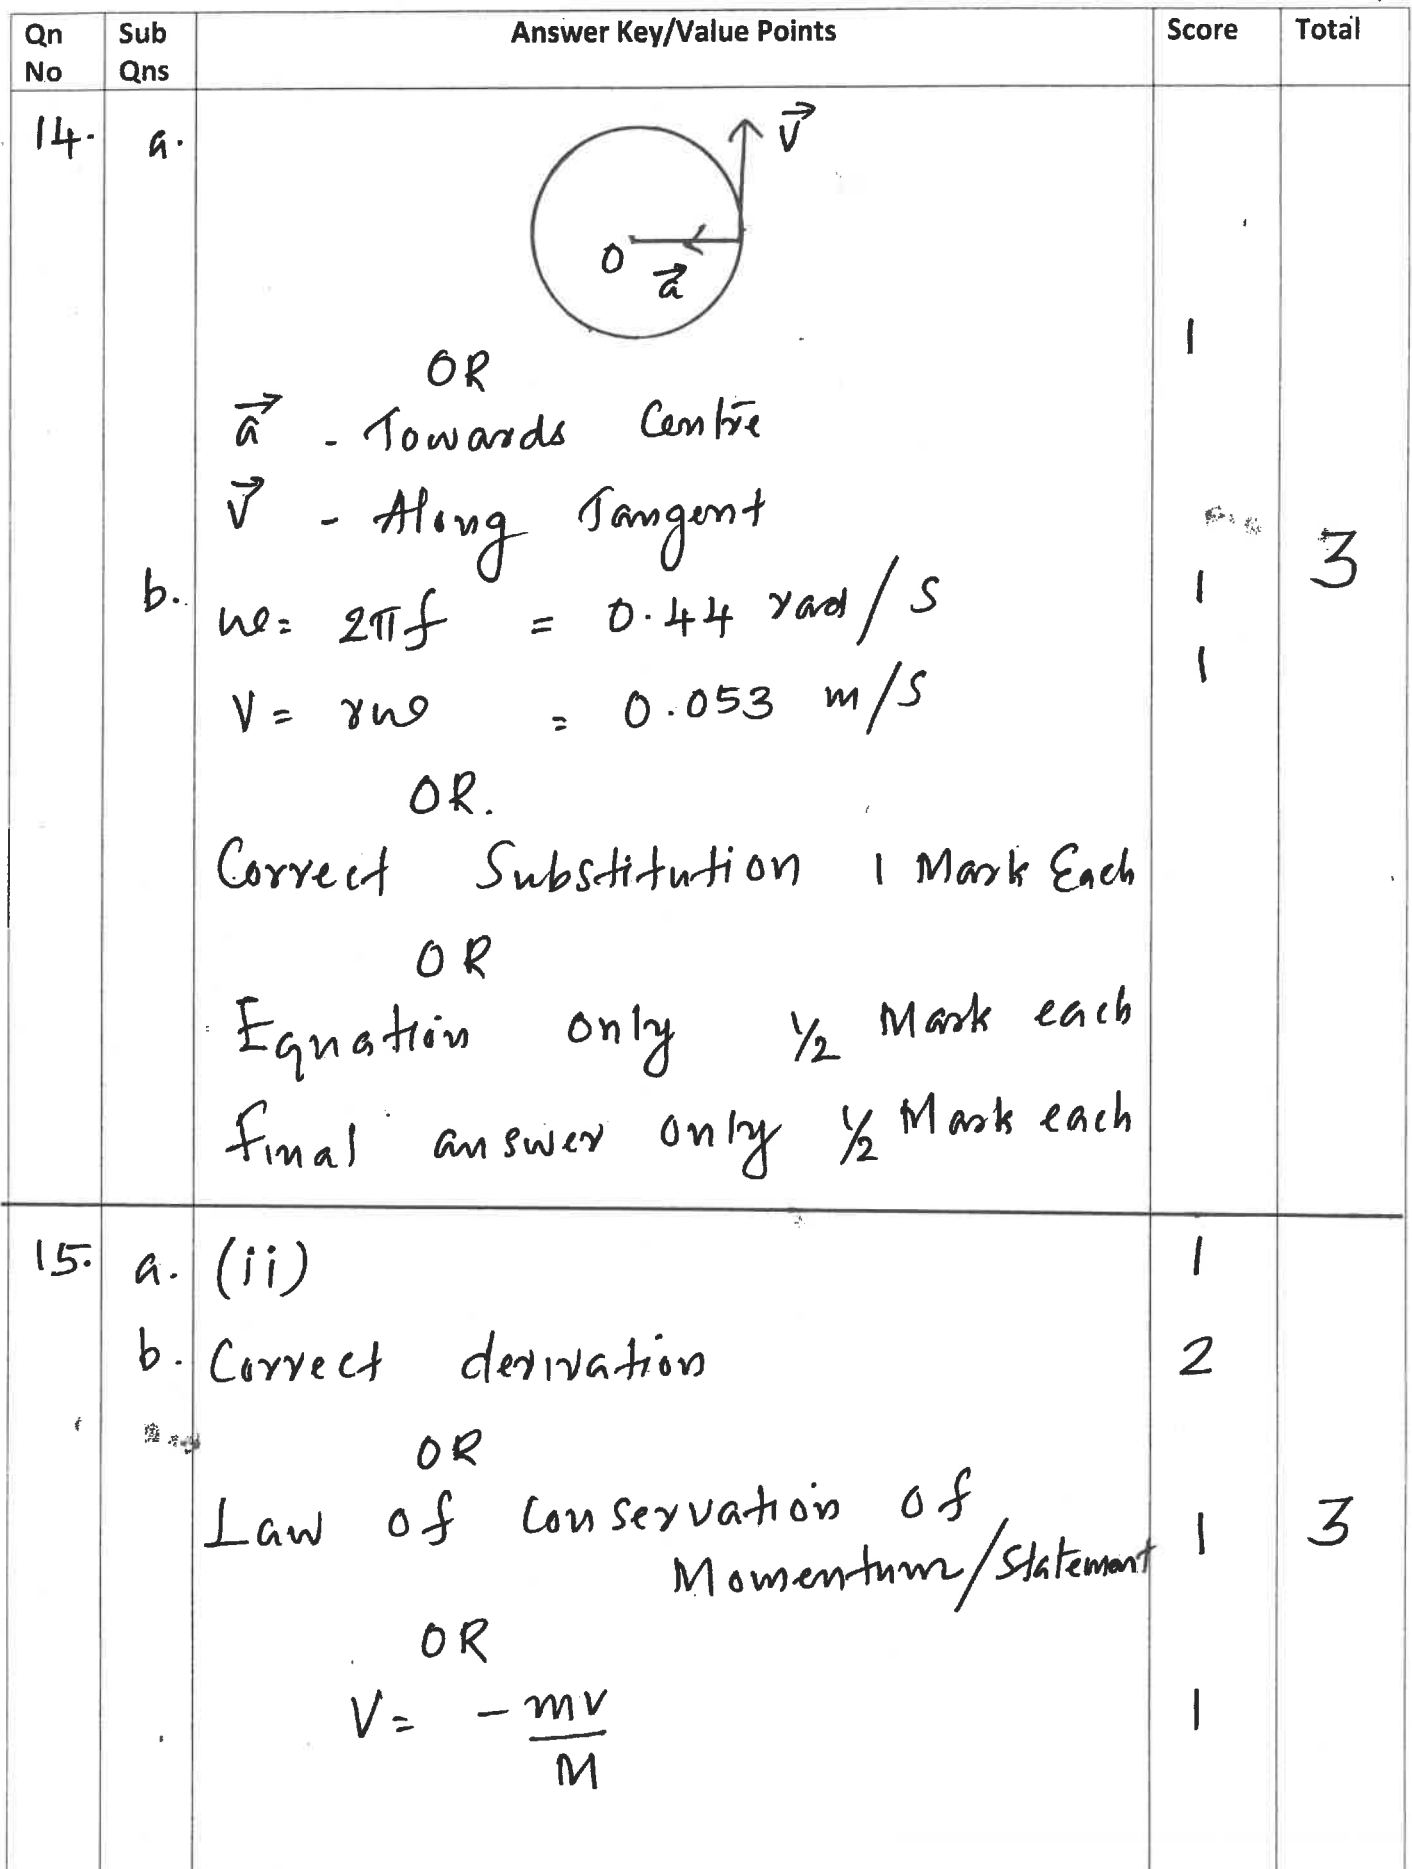 Qn No Sub Qns Answer Key/Value Points Score Total
14. a.
V⃗
O
a⃗
1
OR
a⃗ - Towards Centre
V⃗ - Along Tangent
3
b. ω = 2πf = 0.44 rad/s 1
V = rω = 0.053 m/s 1
OR.
Correct Substitution 1 Mark Each
OR
Equation only ½ Mark each
final answer only ½ Mark each
15. a. (ii) 1
b. Correct derivation 2
OR
Law of Conservation of
Momentum/Statement 1 3
OR
V = -mv/M 1